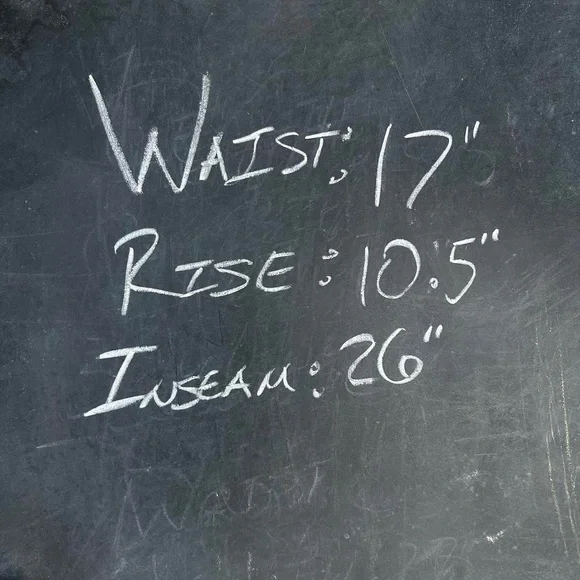 Waist: 17"
Rise: 10.5"
Inseam: 26"